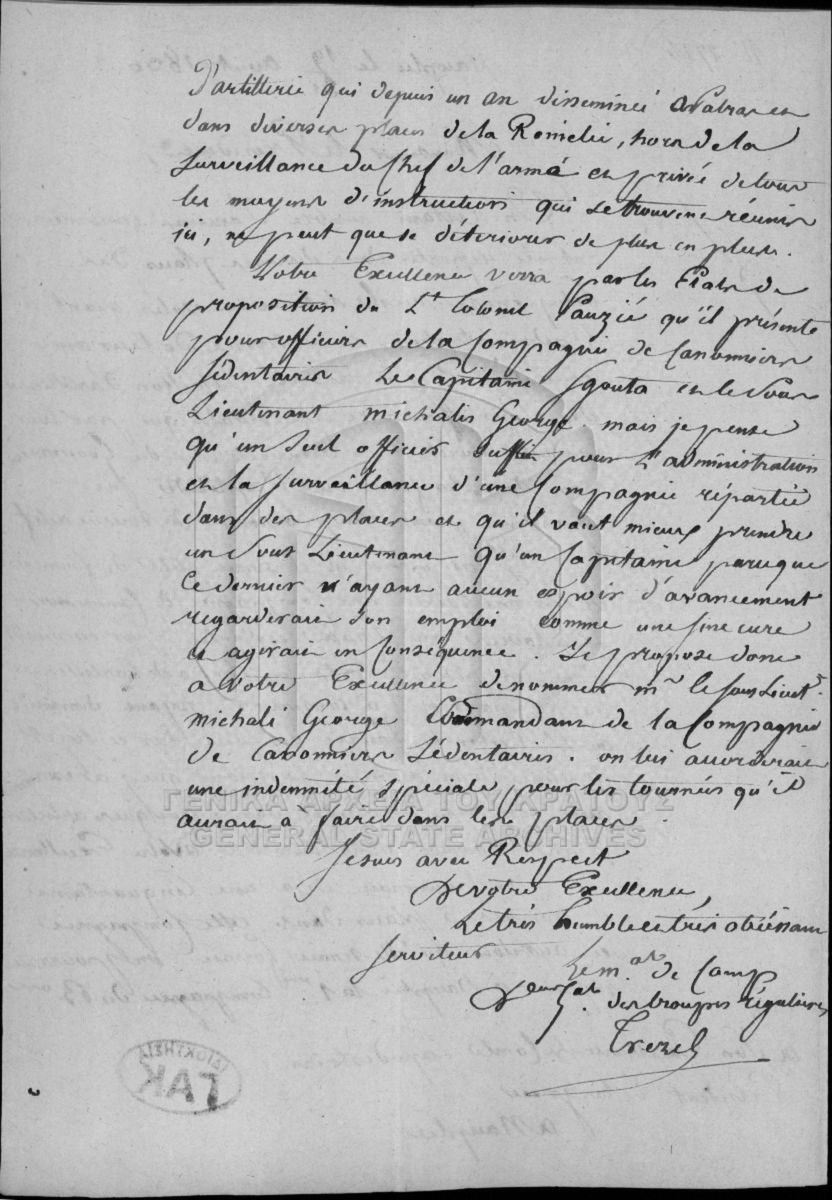 d'artillerie qui depuis un an disseminée a Patras et
dans diverses places de la Romélie, hors de la
surveillance du chef de l'arme et privée de tous
les moyens d'instruction qui se trouvent réunis
ici, ne peut que se déteriorer de plus en plus.
Votre Excellence verra par les Etats de
proposition du Lt Colonel Pauzié qu'il présente
pour officiers de la Compagnie de Canonniers
sédentaires Le Capitaine Sgouta et le Sous
Lieutenant michalis George. mais je pense
qu'un seul officier suffit pour l'administration
et la surveillance d'une Compagnie répartie
dans des places et qu'il vaut mieux prendre
un Sous Lieutenant qu'un Capitaine parceque
ce dernier n'ayant aucun espoir d'avancement
regarderait son emploi comme une sine cure
et agirait en Conséquence. Je propose donc
a Votre Excellence de nommer mr le sous Lieut.
michali George Commandant de la Compagnie
de Canonniers Sédentaires. on lui accorderait
une indemnité spéciale pour les tournées qu'il
aurait à faire dans les places.
Je suis avec Respect
De votre Excellence,
Le très humble et très obéissant
serviteur
Le m.al de Camp
Dr.eur G.al des troupes régulières
Trezel
ΓΕΝΙΚΑ ΑΡΧΕΙΑ ΤΟΥ ΚΡΑΤΟΥΣ
GENERAL STATE ARCHIVES
ΙΔΙΟΚΤΗΣΙΑ
ΓΑΚ